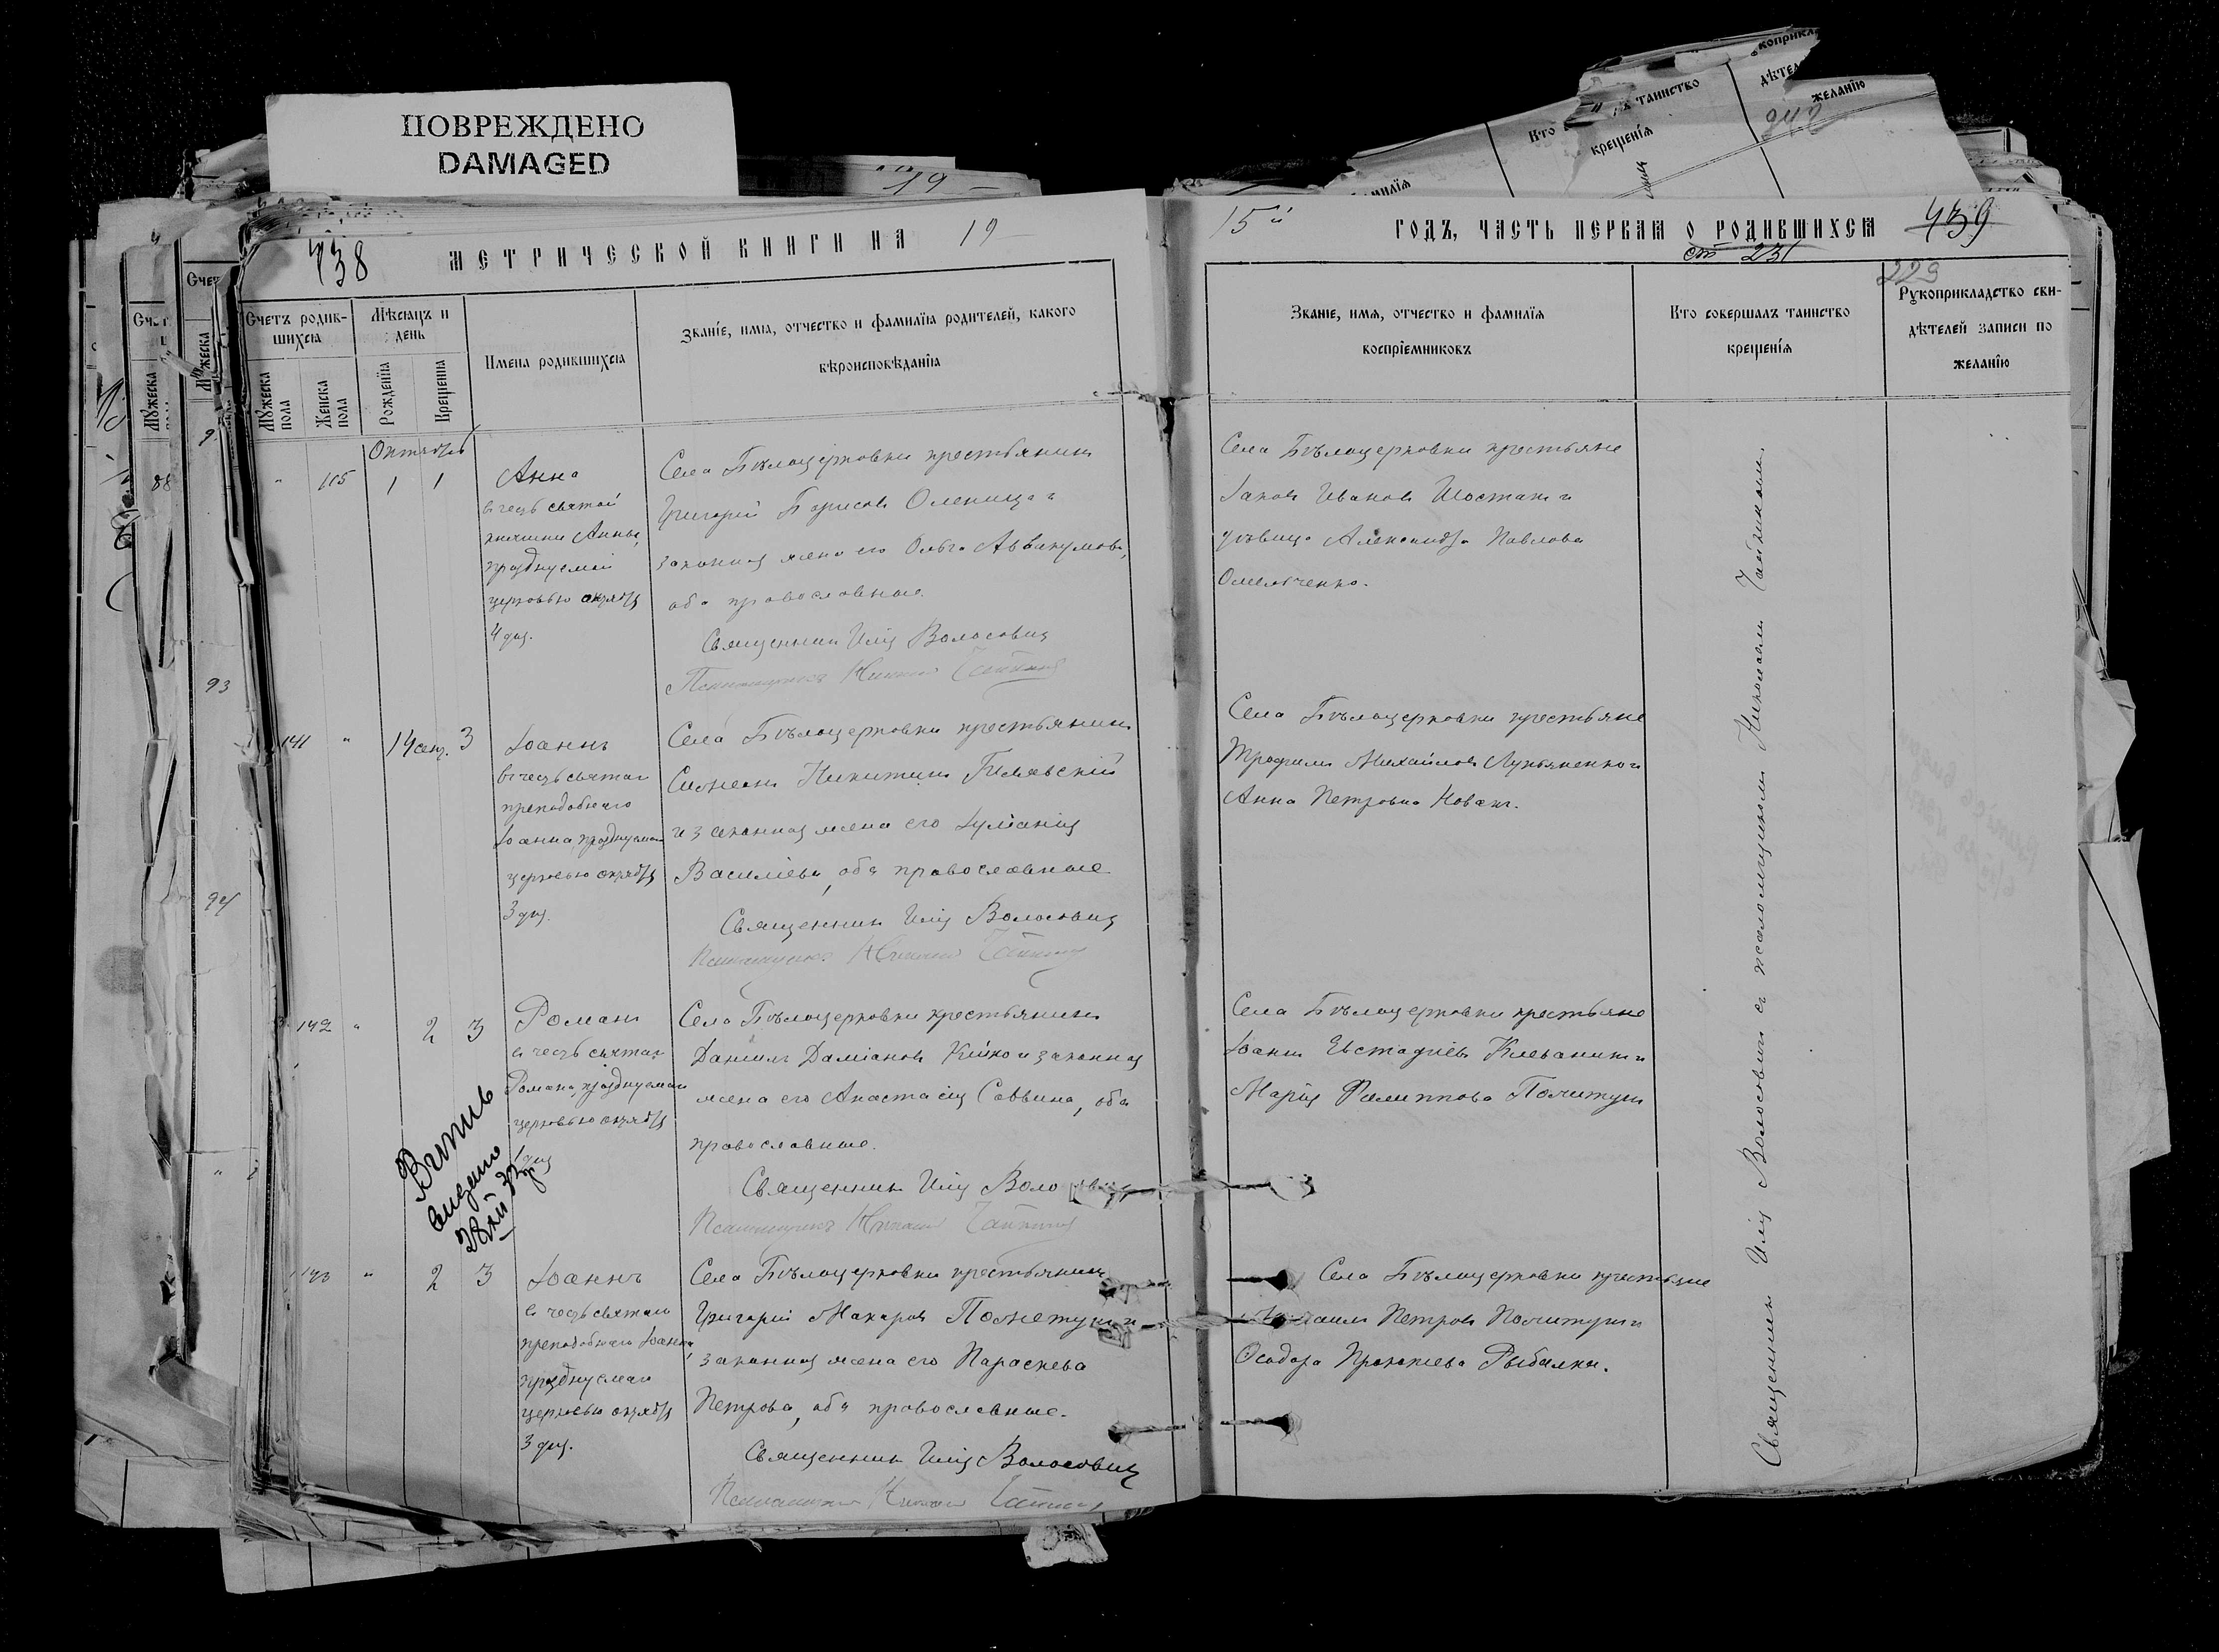 ПОВРЕЖДЕНО
DAMAGED
19
Кто
ТАИНСТВО
КРЕЩЕНІЯ
ЖЕЛАНІЮ
942
438
МЕТРИЧЕСКОЙ КНИГИ НА 19
Счетъ родив-
шихся
Мѣсяцъ и
день
Мужеска
пола
Женска
пола
Рожденія
Крещенія
Имена родившихся
Званіе, имя, отчество и фамилія родителей, какого
вѣроисповѣданія
Октябрь
" 105 1 1
Анна
въ честь святой
княгини Анны,
празднуемой
церковью октября
4 дня.
Села Бѣлоцерковки крестьянинъ
Григорій Борисовъ Оленица и
законная жена его Ольга Аввакумова,
оба православные.
Священникъ Илія Волосовичъ
Псаломщикъ Николай Чайкинъ
141 " 14 сен. 3
Іоаннъ
въ честь святаго
преподобнаго
Іоанна, празднуемаго
церковью октября
3 дня.
Села Бѣлоцерковки крестьянинъ
Симеонъ Никитинъ
и законная жена его Іуліанія
Василіева, оба православные
Священникъ Илія Волосовичъ
Псаломщикъ Николай Чайкинъ
142 " 2 3
Романъ
въ честь святаго
Романа, празднуемаго
церковью октября
1 дня
Села Бѣлоцерковки крестьянинъ
Даніилъ Даміановъ Кийко и законная
жена его Анастасія Саввина, оба
православные.
Священникъ Илія Волосовичъ
Псаломщикъ Николай Чайкинъ
143 " 2 3
Іоаннъ
въ честь святаго
преподобнаго Іоанна,
празднуемаго
церковью октября
3 дня.
Села Бѣлоцерковки крестьянинъ
Григорій Макаровъ и
законная жена его Параскева
Петрова, оба православные.
Священникъ Илія Волосовичъ
Псаломщикъ Николай Чайкинъ
88
93
94
15й ГОДЪ, ЧАСТЬ ПЕРВАЯ О РОДИВШИХСЯ 439
ст 231
229
Званіе, имя, отчество и фамилія
воспріемниковъ
Кто совершалъ таинство
крещенія
Рукоприкладство сви-
дѣтелей записи по
желанію
Села Бѣлоцерковки крестьяне
Іаковъ Ивановъ Шостакъ и
дѣвица Александра Павлова
Омельченко.
Села Бѣлоцерковки крестьяне
Трофимъ Михайловъ Лукьяненко и
Анна Петровна Новакъ.
Села Бѣлоцерковки крестьяне
Іоаннъ Евстафіевъ и
Марія Филиппова Политуш
Села Бѣлоцерковки крестьяне
Петровъ и
Ѳеодора Прокопіева Рыбалка.
Священникъ Илія Волосовичъ съ псаломщикомъ Николаемъ Чайкинымъ.